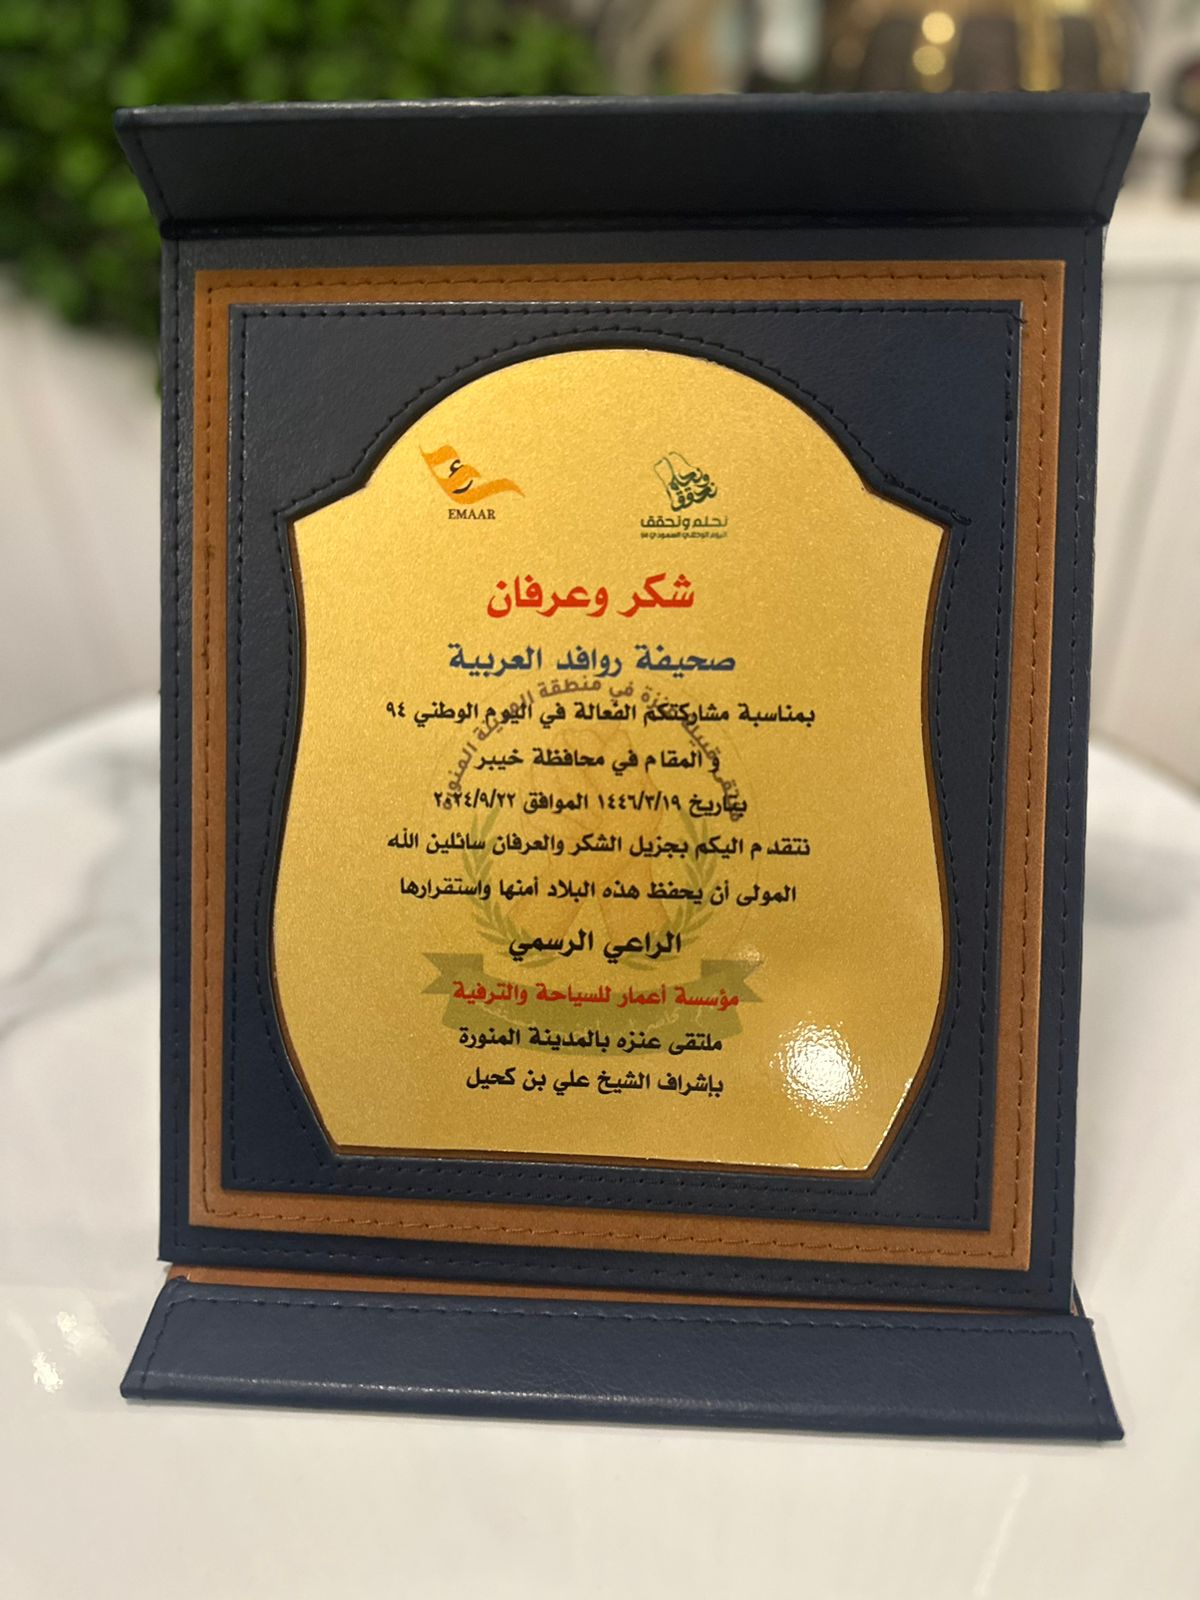 EMAAR
نحلم ونحقق
نحلم ونحقق
اليوم الوطني السعودي 94
شكر وعرفان
صحيفة روافد العربية
بمناسبة مشاركتكم الفعالة في اليوم الوطني ٩٤
و المقام في محافظة خيبر
بتاريخ ١٤٤٦/٣/١٩ الموافق ٢٠٢٤/٩/٢٢
نتقدم اليكم بجزيل الشكر والعرفان سائلين الله
المولى أن يحفظ هذه البلاد أمنها واستقرارها
الراعي الرسمي
مؤسسة أعمار للسياحة والترفية
ملتقى عنزه بالمدينة المنورة
بإشراف الشيخ علي بن كحيل
ملتقى قبيلة عنزة في منطقة المدينة المنورة